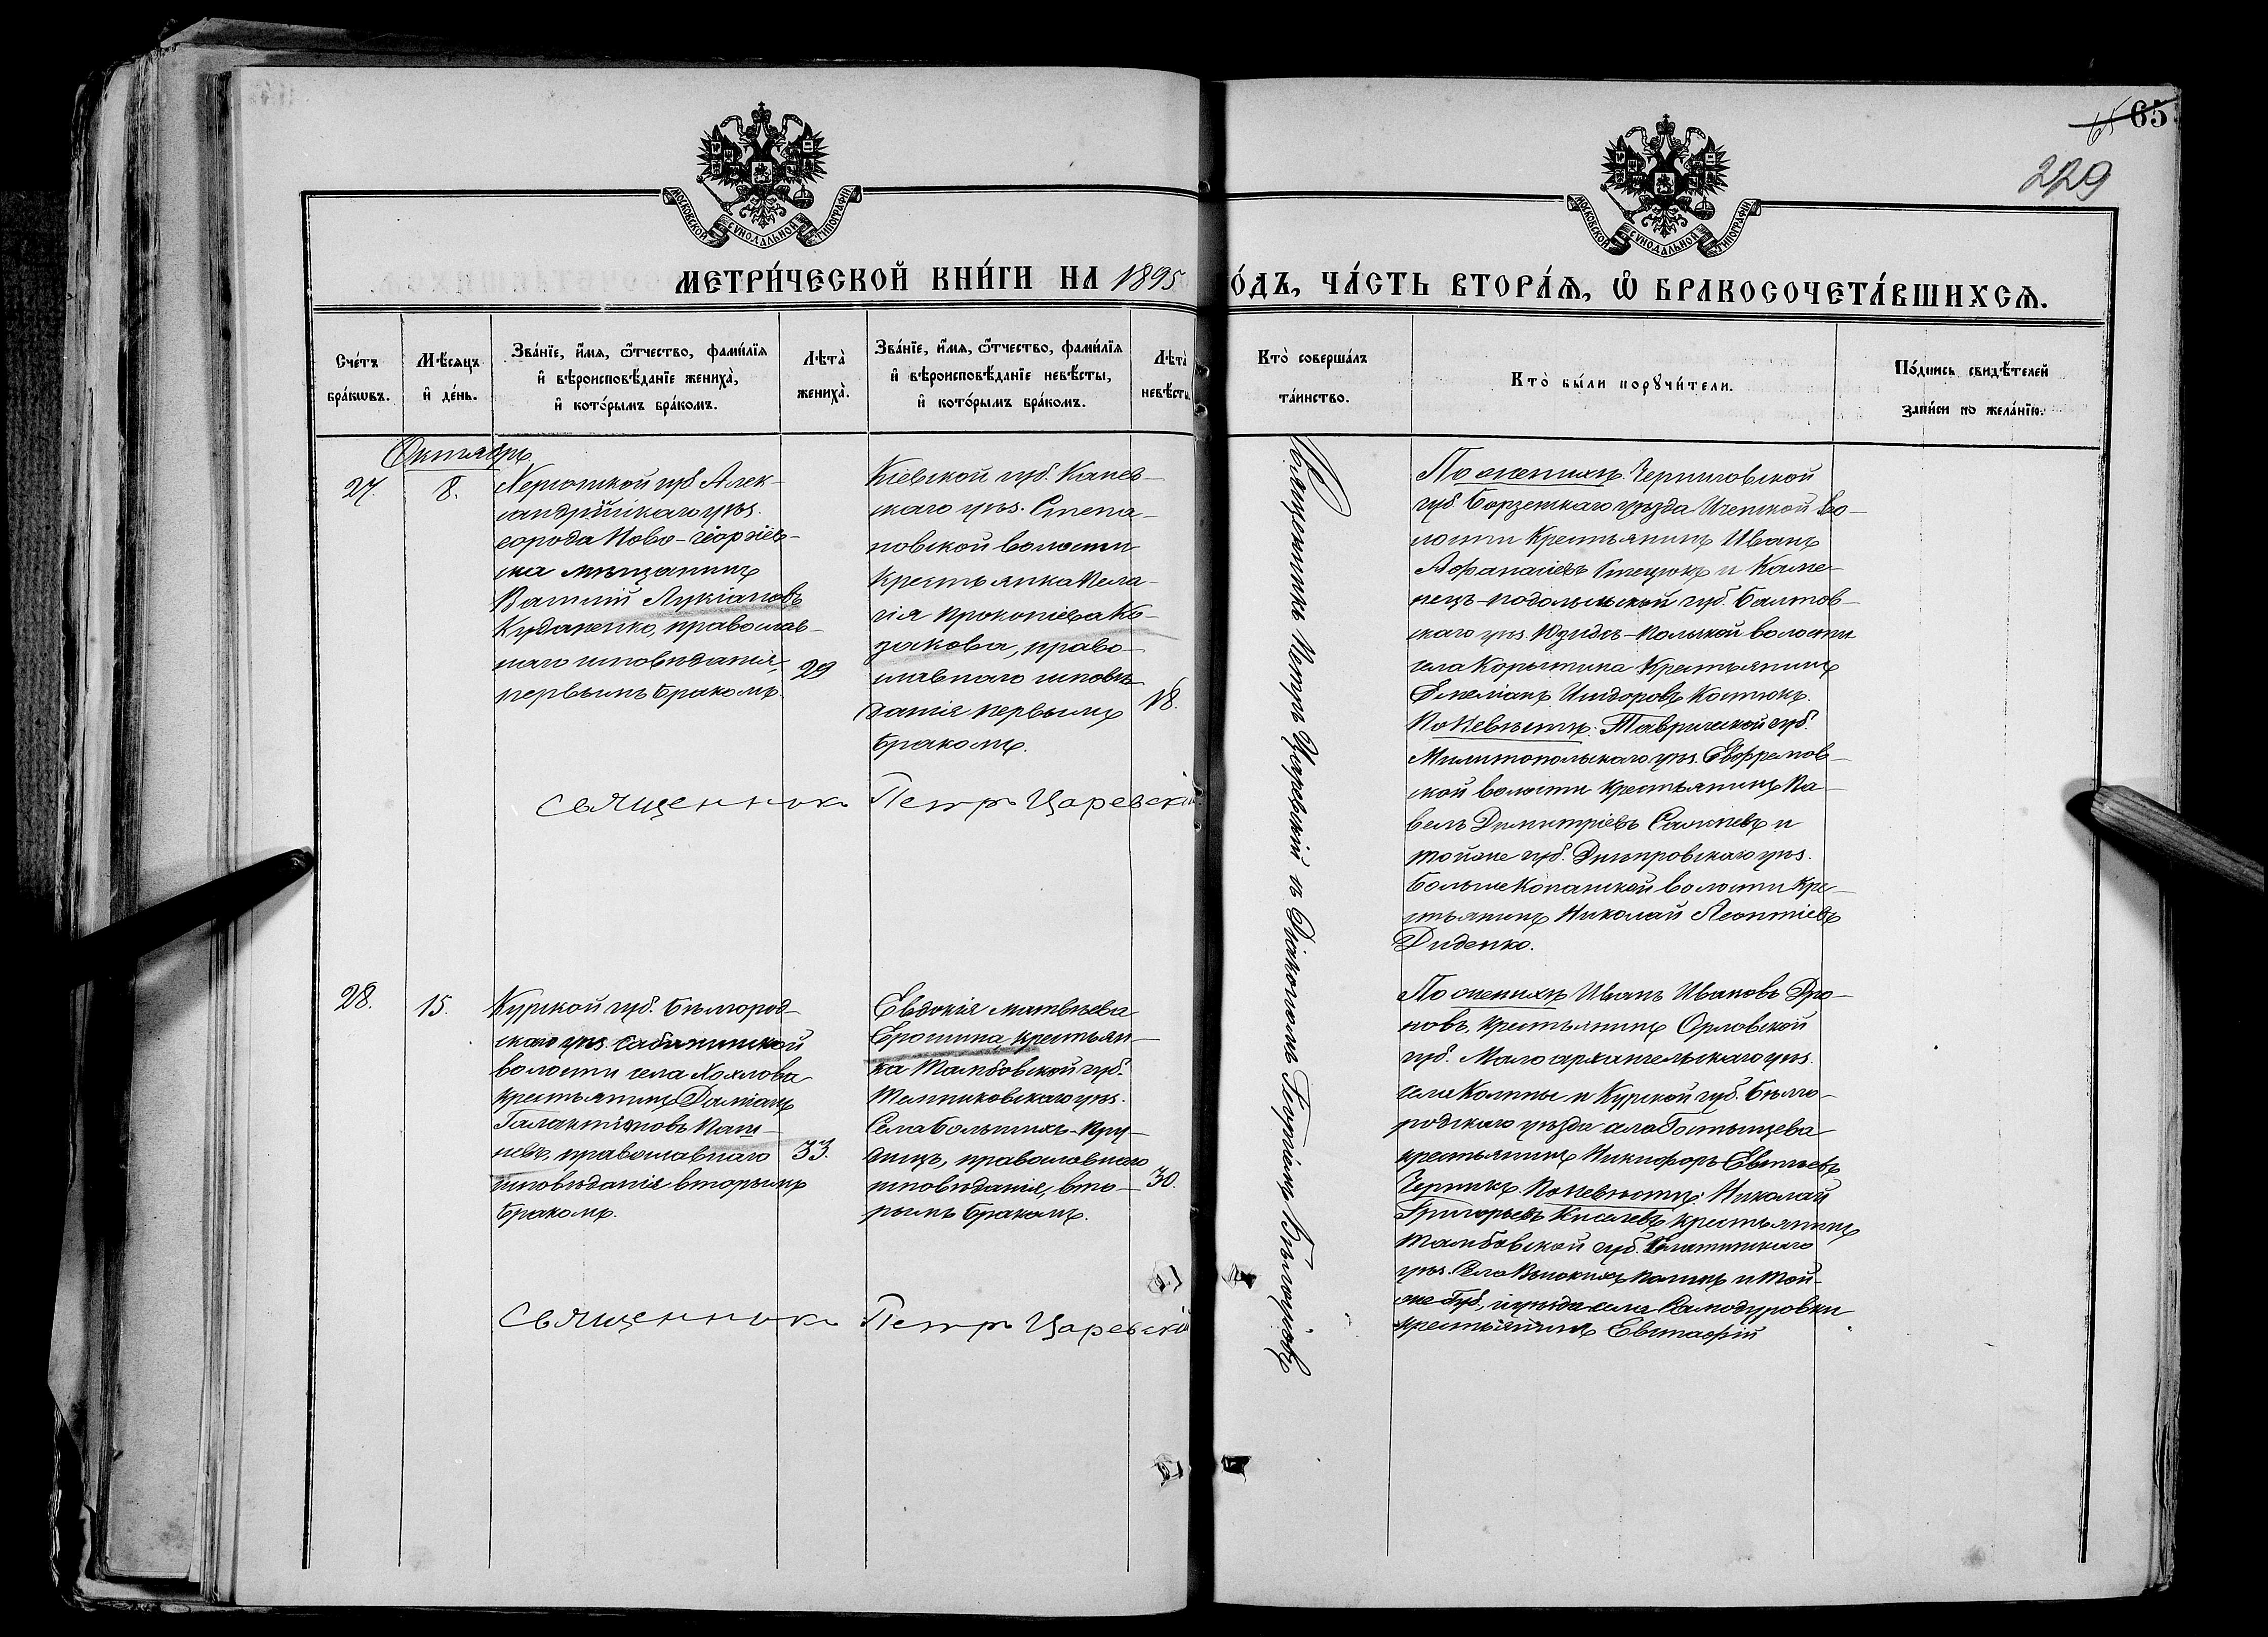 65
65
229
МОСКОВСКОЙ СѴНОДАЛЬНОЙ ТИПОГРАФІИ
МОСКОВСКОЙ СѴНОДАЛЬНОЙ ТИПОГРАФІИ
МЕТРИ́ЧЕСКОЙ КНИ́ГИ НА 1895
О́ДЪ, ЧА́СТЬ ВТОРА́Ѧ, Ѽ БРАКОСОЧЕТА́ВШИХСѦ.
Сче́тъ бра́кѡвъ.
Мѣ́сяцъ и҆ де́нь.
Зва́нїе, и҆́мя, ѻ҆́тчество, фами́лїя и҆ вѣроисповѣ́данїе жениха̀, и҆ кото́рымъ бра́комъ.
Лѣта̀ жениха̀.
Зва́нїе, и҆́мя, ѻ҆́тчество, фами́лїя и҆ вѣроисповѣ́данїе невѣ́сты, и҆ кото́рымъ бра́комъ.
Лѣта̀ невѣ́сты
Кто̀ соверша́лъ та́инство.
Кто̀ бы́ли порꙋчи́тели.
По́дпись свидѣ́телей за́писи по жела́нїю.
Октябрь
27.
8.
Херсонской губ. Алек-
сандрійскаго уѣз.
города Ново-Георгіев-
ска мѣщанинъ
Василій Лукіановъ
Куданенко, православ-
наго исповѣданія,
первымъ бракомъ.
29
Кіевской губ. Канев-
скаго уѣз. Степа-
новской волости
крестьянка Пела-
гія Прокопіева Ко-
закова, право-
славнаго исповѣ-
данія первымъ
бракомъ.
18.
Священникъ Петръ Царевскій
Священникъ Петръ Царевскій съ Діакономъ
По женихѣ: Черниговской
губ. Борзенскаго уѣзда Иченской во-
лости Крестьянинъ Иванъ
Афанасіевъ Стецюкъ и Каме-
нецъ-подольской губ. Балтов-
скаго уѣз. волости
села Корытина Крестьянинъ
Емеліанъ Исидоровъ Костюкъ.
По Невѣстѣ: Таврической губ.
Милитопольскаго уѣз. Ефремов-
ской волости крестьянинъ Па-
велъ Димитріевъ и
тойже губ. Днѣпровскаго уѣз.
Больше Копанской волости кре-
стьянинъ Николай Леонтіевъ
Диденко.
28.
15.
Курской губ. Бѣлгород-
скаго уѣз. Сабынинской
волости села Хохлова
крестьянинъ Даміанъ
Галактіоновъ
православнаго
исповѣданія вторымъ
бракомъ.
33.
Евдокія Матвѣева
Ерошина, крестьян-
ка Тамбовской губ.
Темниковскаго уѣз.
Села Большихъ-Пру-
дищъ, православнаго
исповѣданія, вто-
рымъ бракомъ.
30.
Священникъ Петръ Царевскій
По женихѣ Иванъ Ивановъ Дро-
новъ, крестьянинъ Орловской
губ. Мало архангельскаго уѣз.
села Колпны и Курской губ. Бѣлго-
родскаго уѣзда села Гостищева
крестьянинъ Никифоръ Евсѣевъ
По Невѣстѣ: Николай
Григорьевъ Киселевъ крестьянинъ
Тамбовской губ. Елатомскаго
уѣз. Села Высокихъ Полянъ и той-
же губ., и уѣзда села Самодуровки
крестьянинъ Евстафій